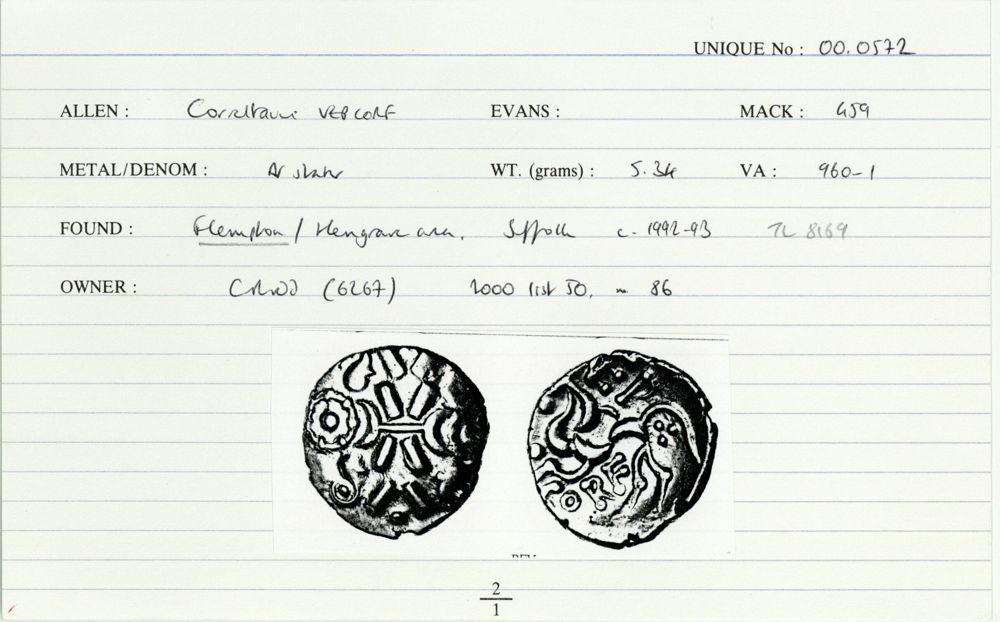 UNIQUE No : 00.0572
ALLEN : Corieltauvi VEP CORF EVANS : MACK : 459
METAL/DENOM : AV stater WT. (grams) : 5.34 VA : 960-1
FOUND : Flempton / Hengrave area, Suffolk c. 1992-93 TL 8169
OWNER : (6267) 2000 list 50, no 86
2
1